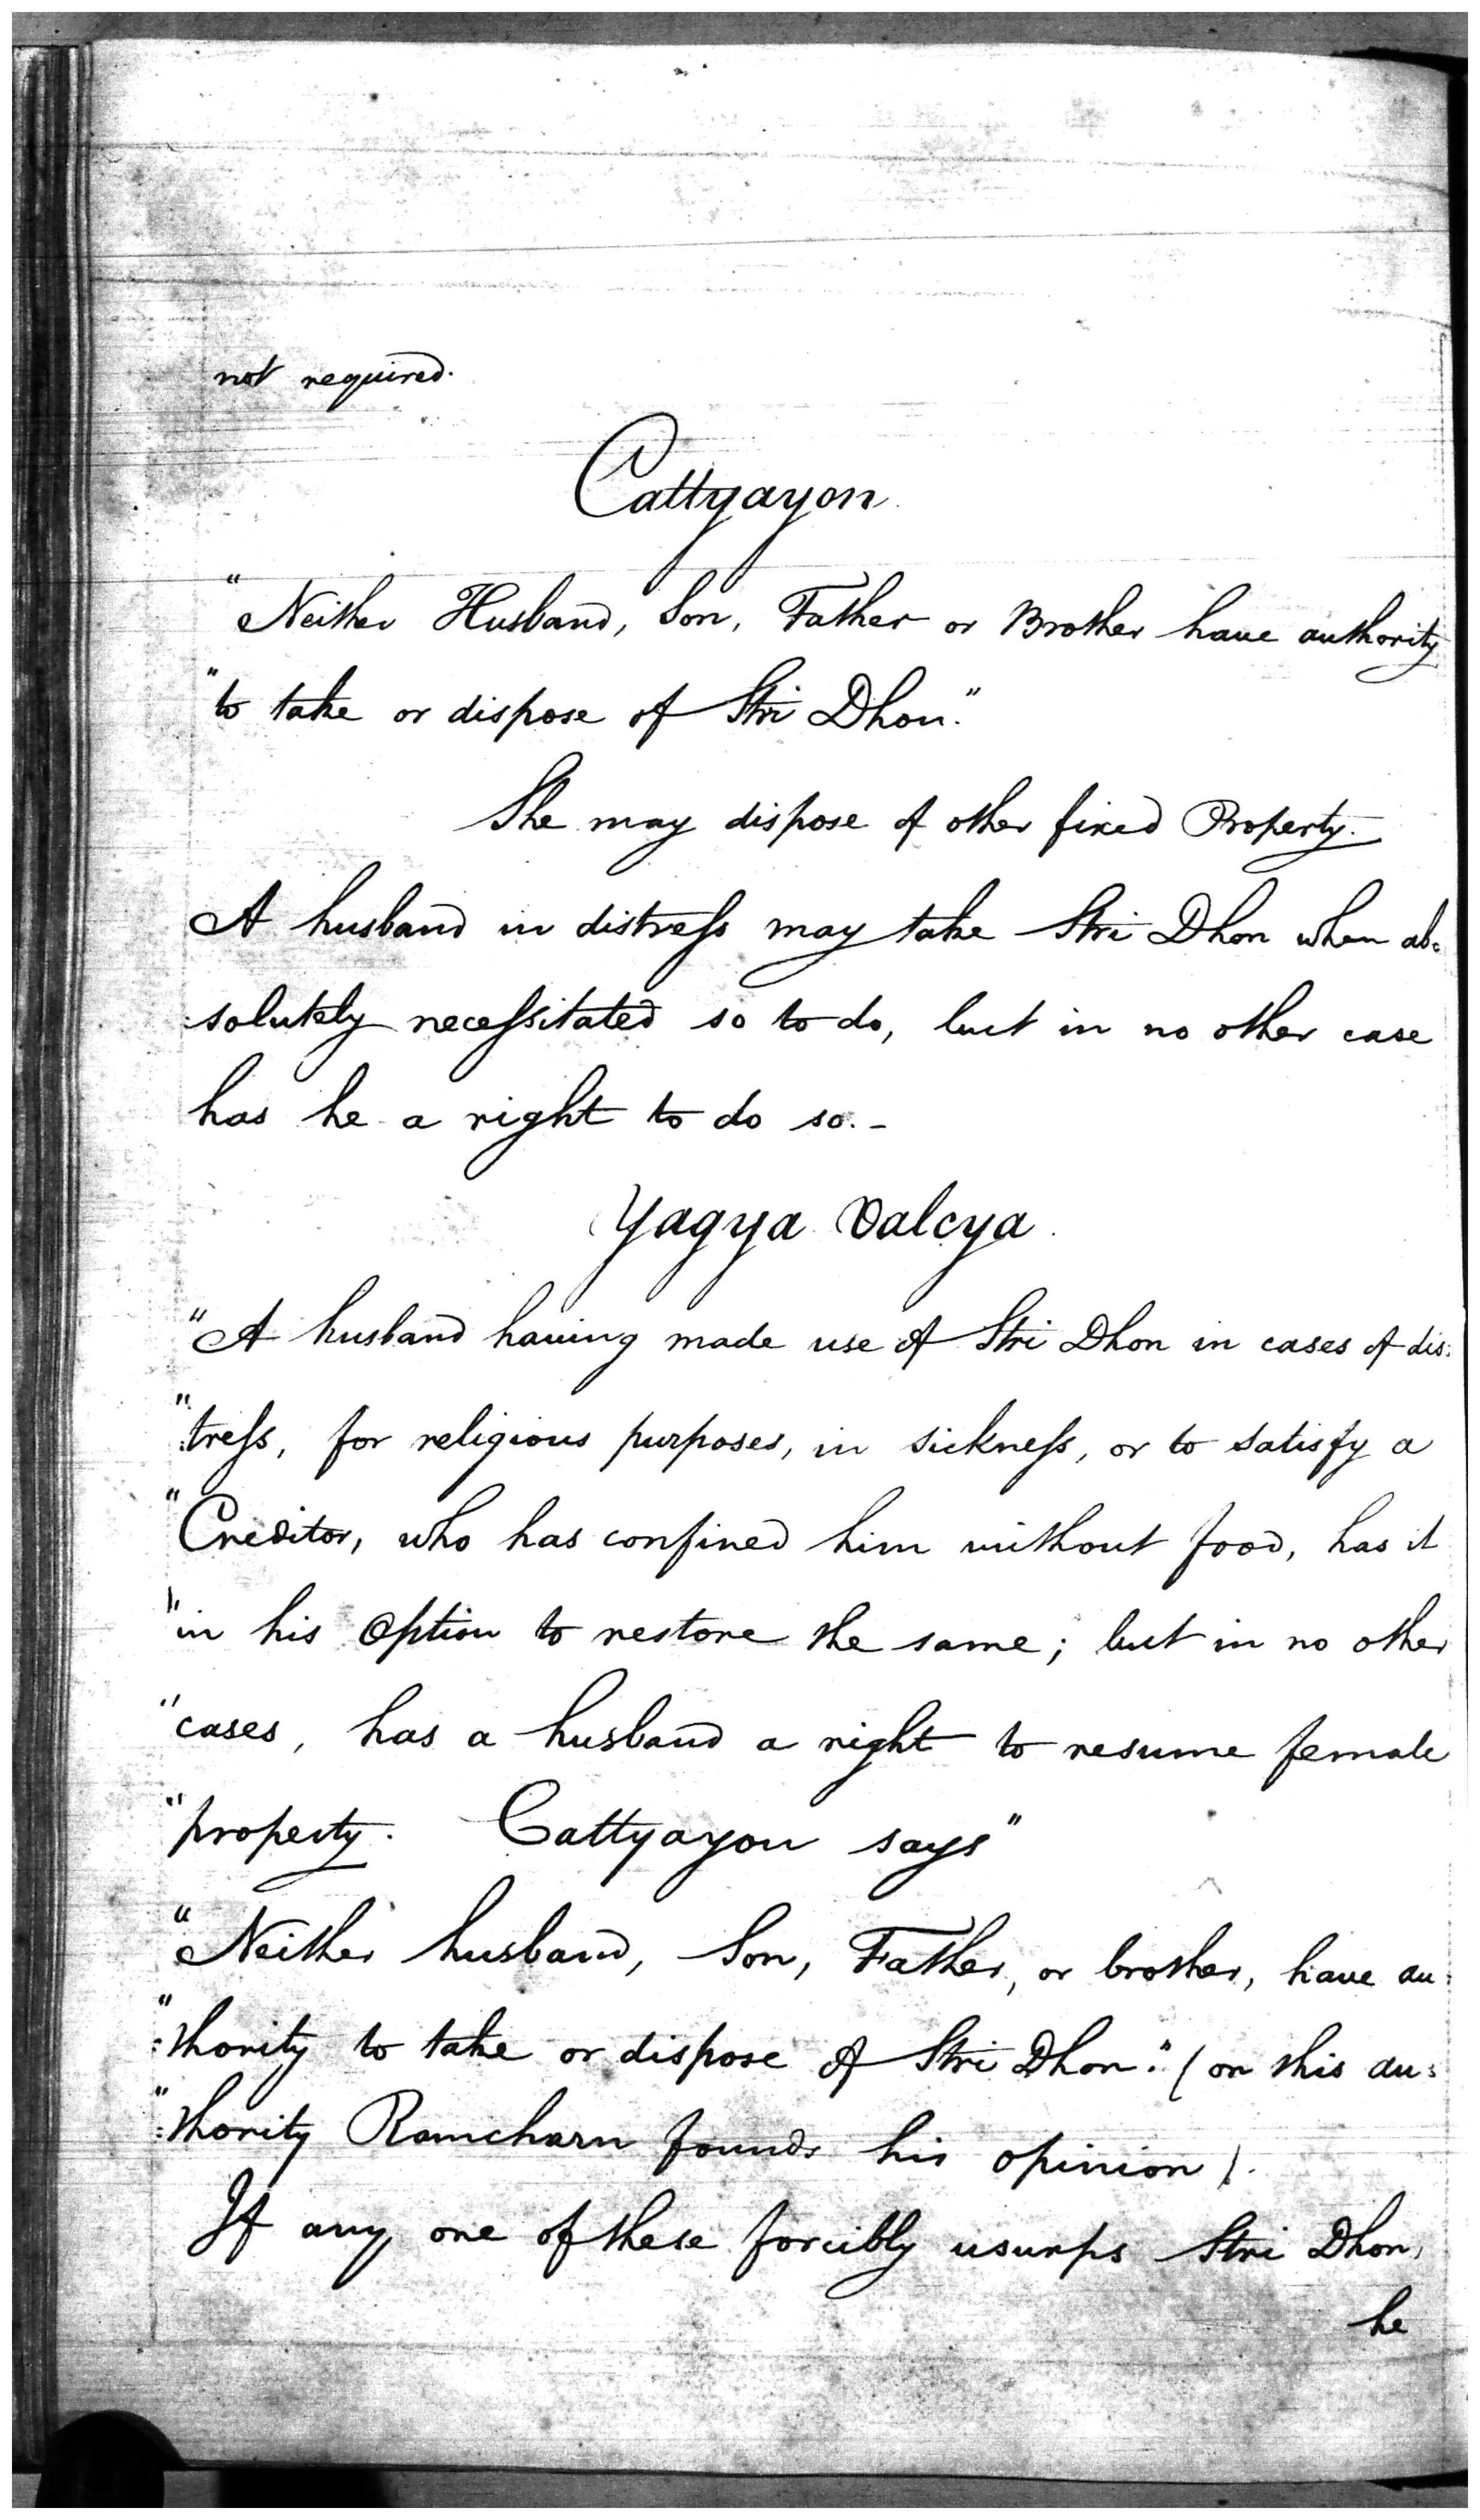 not required.
Cattyayon.
"Neither Husband, Son, Father or Brother have authority
"to take or dispose of Stri Dhon."
She may dispose of other fixed Property.
A husband in distress may take Stri Dhon when ab=
solutely necessitated so to do, but in no other case
has he a right to do so.-
Yagya Valcya.
"A husband having made use of Stri Dhon in cases of dis:
":tress, for religious purposes, in sickness, or to satisfy a
"Creditor, who has confined him without food, has it
"in his Option to restore the same; but in no other
"cases, has a husband a right to resume female
"property. Cattyayon says"
"Neither husband, Son, Father, or brother, have au:
":thority to take or dispose of Stri Dhon." (on this au:
":thority Ramcharn founds his opinion).
If any one of these forcibly usurps Stri Dhon,
he